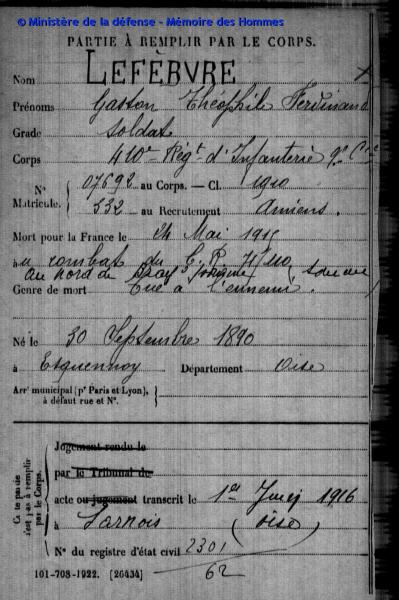 © Ministère de la défense - Mémoire des Hommes
PARTIE À REMPLIR PAR LE CORPS.
Nom LEFÈBVRE
Prénoms Gaston Théophile Ferdinand
Grade Soldat
Corps 410e Régt d'Infanterie 9e Cie
N° 07692 au Corps. — Cl. 1910
Matricule. 532 au Recrutement Amiens.
Mort pour la France le 24 Mai 1915
à u combat du
au nord de
Genre de mort Tué à l'ennemi.
Né le 30 Septembre 1890
à Esquennoy Département Oise
Arrt municipal (pr Paris et Lyon), à défaut rue et N°.
Cette partie n'est pas à remplir par le Corps.
Jugement rendu le
par le Tribunal de
acte ou jugement transcrit le 1er 1916
à Sarnois (Oise)
N° du registre d'état civil 2301
62
101-708-1922. [26434]